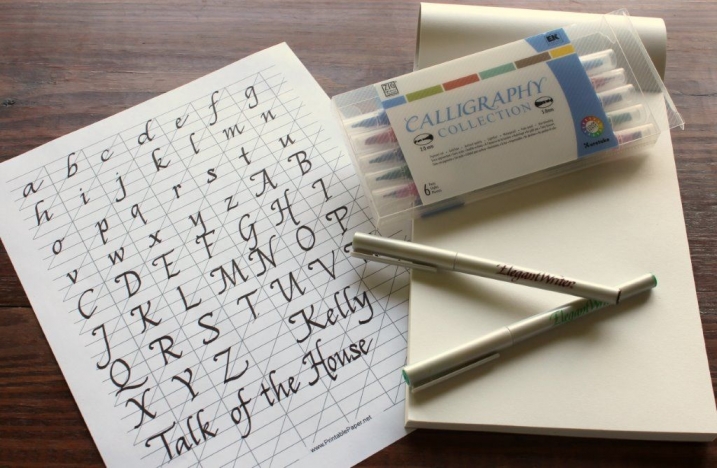 a b c d e f g
h i j k l m n
o p q r s t u
v w x y z A B
C D E F G H I
J K L M N O P
Q R S T U V
X Y Z Kelly
Talk of the House
www.PrintablePaper.net
ZIG
EK
CALLIGRAPHY
COLLECTION
2.0 mm
5.0 mm
6
Kuretake
Elegant Writer